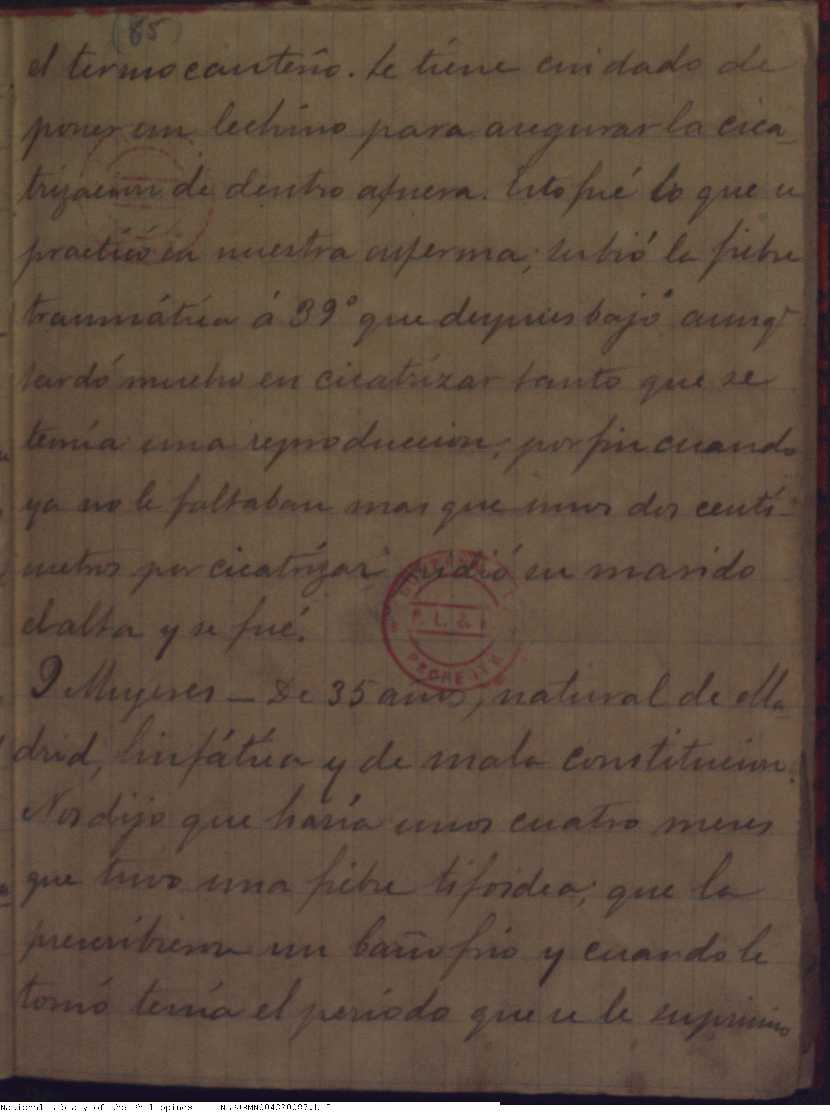 (85)
el termocauterio. Se tiene cuidado de
poner un lechino para asegurar la cica-
trizacion de dentro afuera. Esto fué lo que se
practicó en nuestra enferma; subió la fiebre
traumática á 39° que despues bajó aunq.
tardó mucho en cicatrizar tanto que se
temía una reproduccion; por fin cuando
ya no le faltaban mas que unos dos centí-
metros por cicatrizar pidió su marido
el alta y se fué.
9 Mujeres — De 35 años, natural de Ma-
drid, linfática y de mala constitucion.
Nos dijo que haría unos cuatro meses
que tuvo una fiebre tifoidea; que la
prescribieron un baño frio y cuando le
tomó tenía el período que se le suprimió
P. L. & I.
National Library of the Philippines